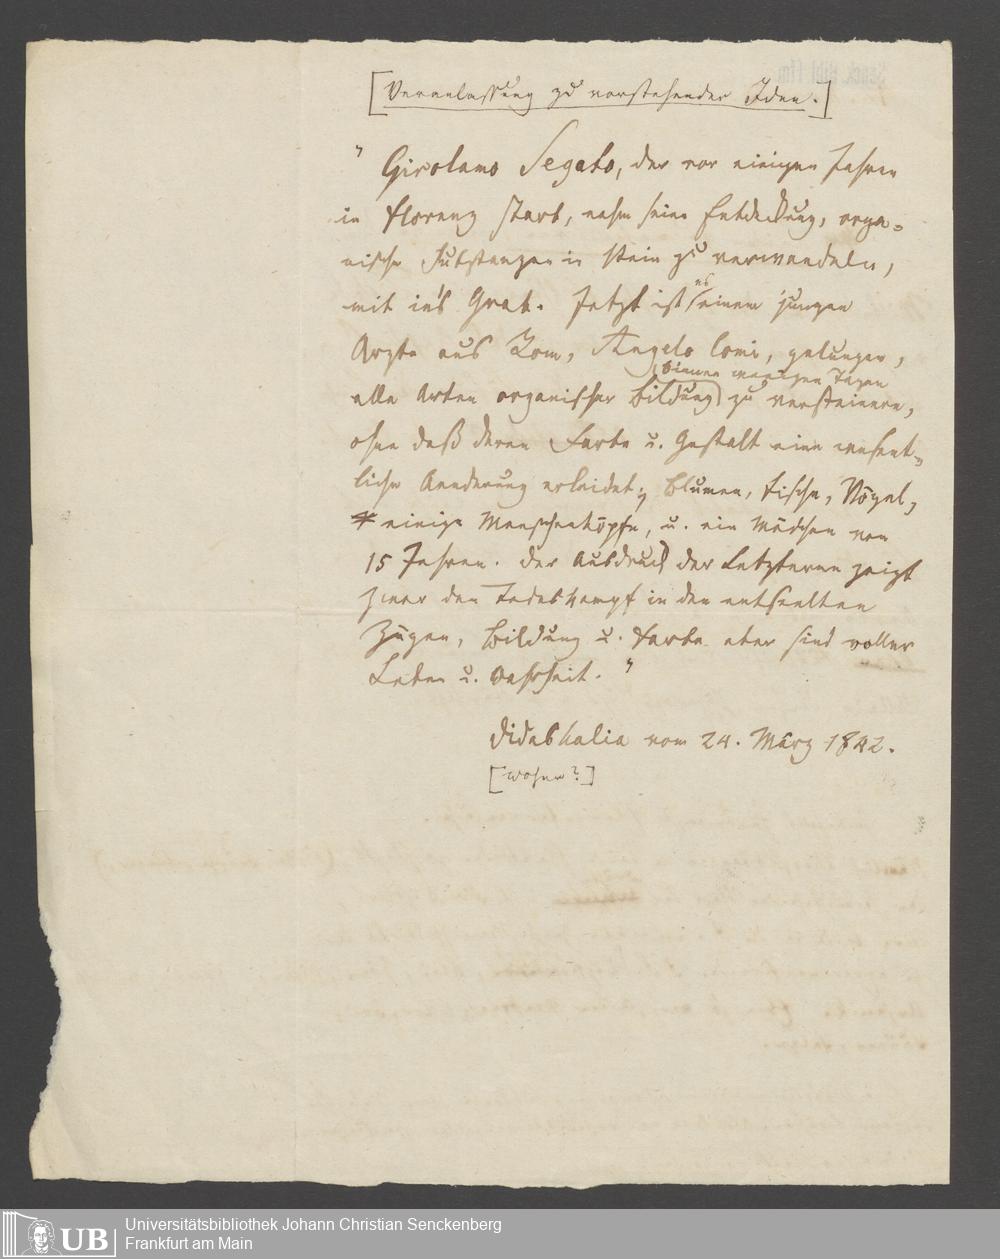 [Veranlassung zu vorstehender Idee.]
" Girolamo Segato, der vor einigen Jahren
in Florenz starb, nahm seine Entdeckung, orga=
nische Substanzen in Stein zu verwandeln,
mit in's Grab. Jetzt ist es einem jungen
Arzte aus Rom, Angelo Comi, gelungen,
binnen wenigen Tagen
alle Arten organischer Bildung zu versteinern,
ohne daß deren Farbe u. Gestalt eine wesent=
liche Aenderung erleidet; Blumen, Fische, Vögel,
einige Menschenköpfe, u. ein Mädchen von
15 Jahren. Der Ausdruck der Letzteren zeigt
zwar den Todeskampf in den entseelten
Zügen, Bildung u. Farbe aber sind voller
Leben u. Wahrheit. "
Didaskalia vom 24. März 1842.
[woher?]
Senck. Bibl. Ffm
Universitätsbibliothek Johann Christian Senckenberg
Frankfurt am Main
UB